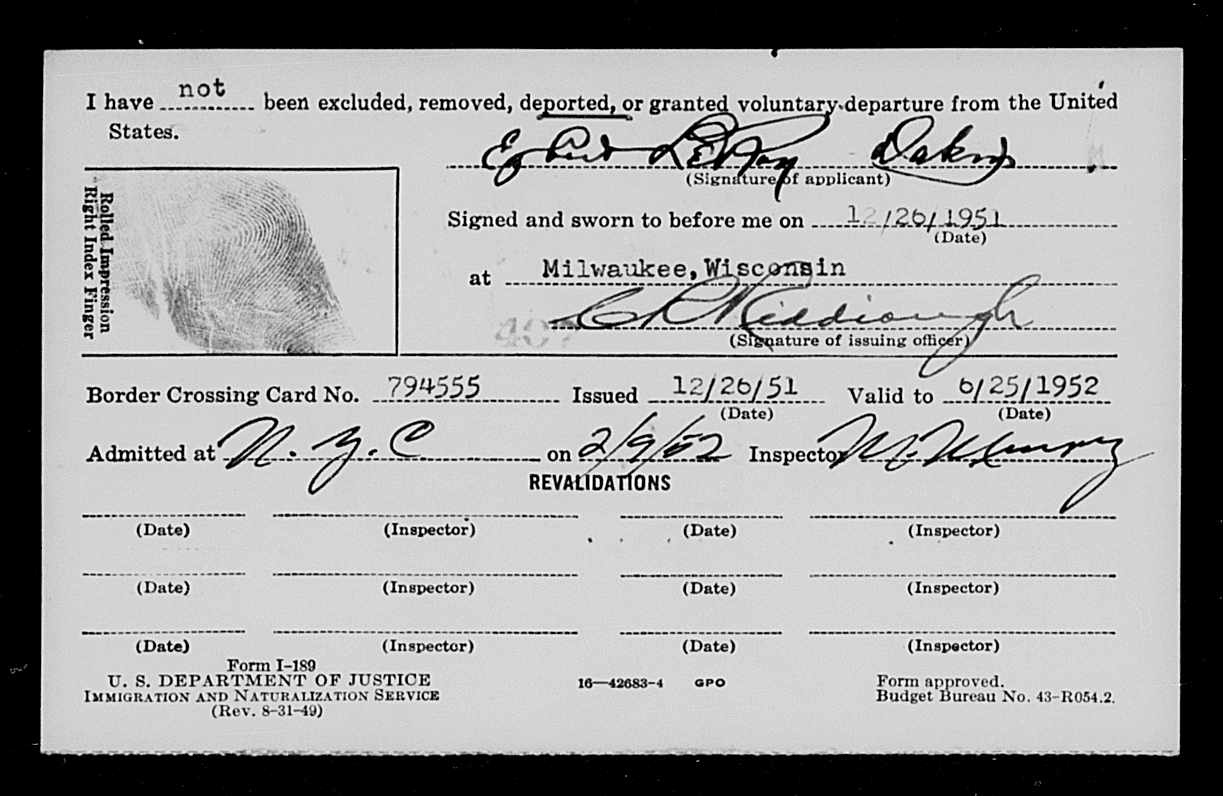 I have not been excluded, removed, deported, or granted voluntary departure from the United
States.
Egbert LeRoy Dakin
(Signature of applicant)
Rolled Impression
Right Index Finger
Signed and sworn to before me on 12/26/1951
(Date)
at Milwaukee,Wisconsin
(Signature of issuing officer)
Border Crossing Card No. 794555 Issued 12/26/51 Valid to 6/25/1952
(Date) (Date)
Admitted at N.Y.C on 2/9/52 Inspector
REVALIDATIONS
(Date) (Inspector) (Date) (Inspector)
(Date) (Inspector) (Date) (Inspector)
(Date) (Inspector) (Date) (Inspector)
Form I-189
U. S. DEPARTMENT OF JUSTICE 16—42683-4 GPO Form approved.
IMMIGRATION AND NATURALIZATION SERVICE Budget Bureau No. 43-R054.2.
(Rev. 8-31-49)